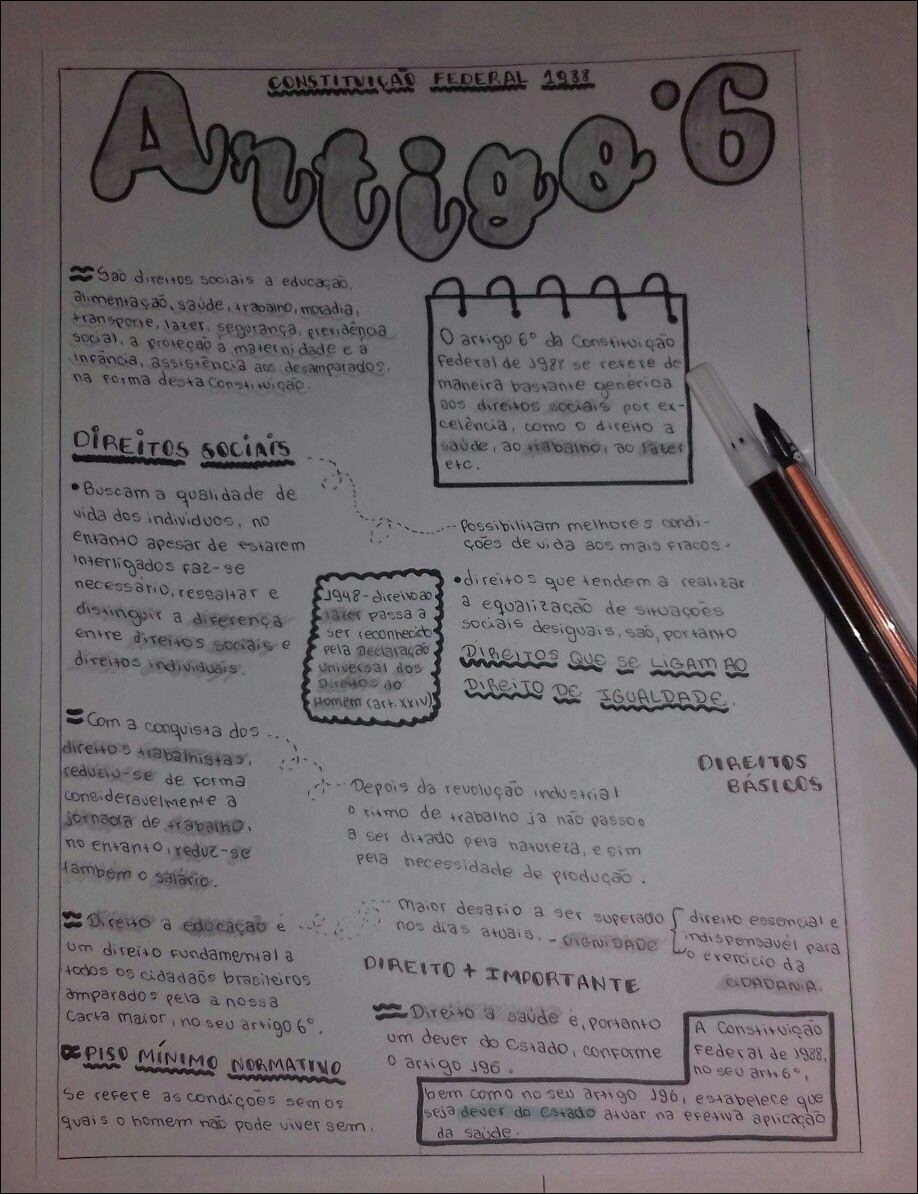 CONSTITUIÇÃO FEDERAL 1988
Artigo °6
≈ São direitos sociais a educação,
alimentação, saúde, trabalho, moradia,
transporte, lazer, segurança, previdência
social, a proteção à maternidade e à
infância, assistência aos desamparados,
na forma desta Constituição.
O artigo 6° da Constituição
Federal de 1988 se refere de
maneira bastante genérica
aos direitos sociais por ex-
celência, como o direito a
saúde, ao trabalho, ao lazer
etc.
DIREITOS SOCIAIS
• Buscam a qualidade de
vida dos individuos, no
entanto apesar de estarem
interligados faz-se
necessário, ressaltar e
distinguir a diferença
entre direitos sociais e
direitos individuais.
Possibilitam melhores condi-
ções de vida aos mais fracos.
1948 - direito ao
lazer passa a
ser reconhecido
pela Declaração
Universal dos
Direitos do
Homem (art. XXIV)
• direitos que tendem a realizar
a equalização de situações
sociais desiguais, são, portanto
DIREITOS QUE SE LIGAM AO
DIREITO DE IGUALDADE.
= Com a conquista dos
direitos trabalhistas,
reduziu-se de forma
consideravelmente a
jornada de trabalho,
no entanto, reduz-se
também o salário.
DIREITOS
BÁSICOS
Depois da revolução industrial
o ritmo de trabalho ja não passou
a ser ditado pela natureza, e sim
pela necessidade de produção.
≈ Direito a educação é
um direito fundamental a
todos os cidadaõs brasileiros
amparados pela a nossa
Carta maior, no seu artigo 6°.
Maior desafio a ser superado
nos dias atuais. - DIGNIDADE
direito essencial e
indispensavél para
o exercício da
CIDADANIA.
DIREITO + IMPORTANTE
≈ Direito à saúde é, portanto
um dever do Estado, conforme
o artigo 196.
PISO MÍNIMO NORMATIVO
Se refere as condições sem os
quais o homem não pode viver sem.
A Constituição
Federal de 1988,
no seu art 6°,
bem como no seu artigo 196, estabelece que
seja dever do Estado atuar na efetiva aplicação
da saúde.